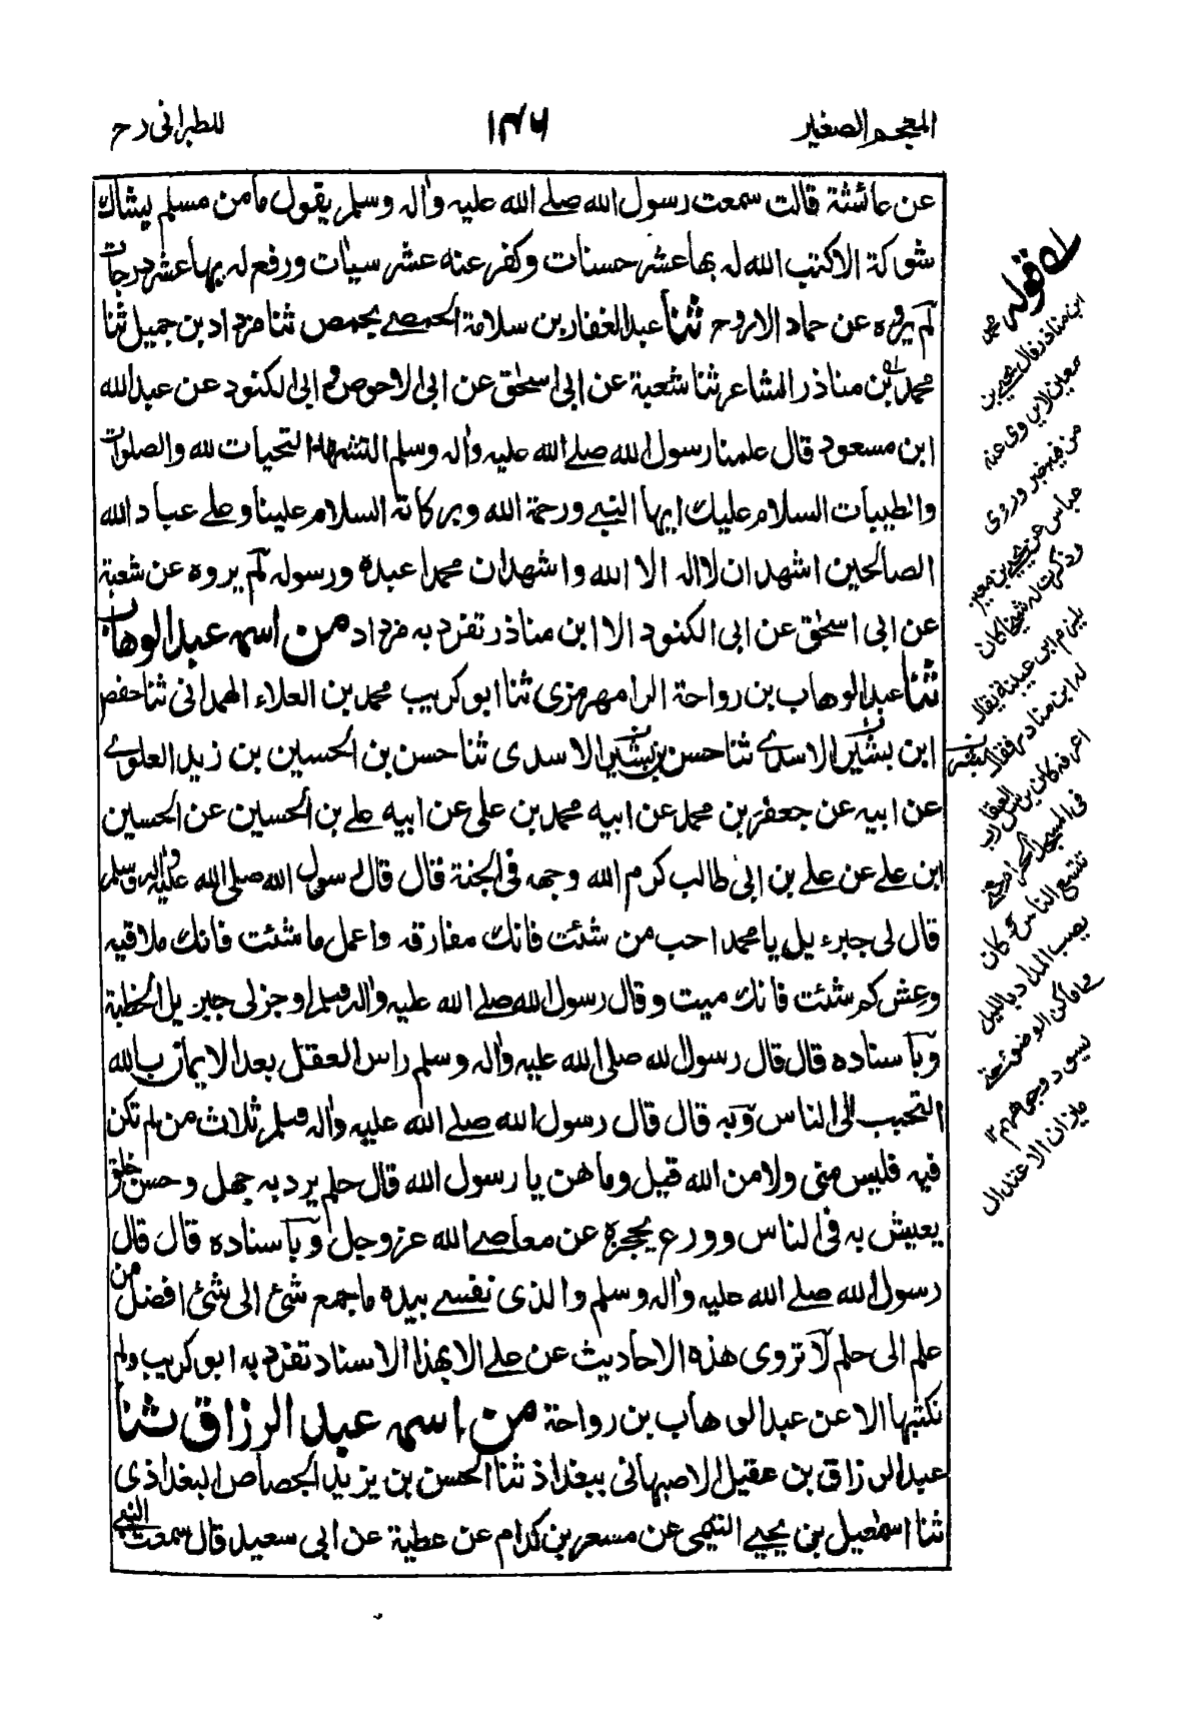 المعجم الصغير
١٤٦
للطبرانی رح
عن عائشة قالت سمعت رسول الله صلے الله علیه واٰله وسلم یقول مامن مسلم یشاك
شوكة الا كتب الله له بها عشر حسنات وكفر عنه عشر سیاٰت ورفع له بها عشر درجات
لم یروه عن حماد الا روح ثنا عبد الغفار بن سلامة الحمصے بحمص ثنا مزداد بن جمیل ثنا
محمد بن مناذر الشاعر ثنا شعبة عن ابی اسحٰق عن ابی الاحوص و ابی الكنود عن عبد الله
ابن مسعود قال علمنا رسول الله صلے الله علیه واٰله وسلم التشهد التحیات لله والصلوات
والطیبات السلام علیك ایها النبے ورحمة الله وبركاته السلام علینا وعلے عباد الله
الصالحین اشهد ان لا اله الا الله واشهد ان محمدا عبده ورسوله لم یروه عن شعبة
عن ابی اسحٰق عن ابی الكنود الا ابن مناذر تفرد به مزداد من اسمه عبد الوهاب
ثنا عبد الوهاب بن رواحة الرامهرمزی ثنا ابو كریب محمد بن العلاء الهمدانی ثنا حفص
ابن بشیر الاسدے ثنا حسن بن بشیر الاسدی ثنا حسن بن الحسین بن زید العلوے
عن ابیه عن جعفر بن محمد عن ابیه محمد بن علی عن ابیه علے بن الحسین عن الحسین
ابن علے عن علے بن ابی طالب كرم الله وجهه فی الجنة قال قال رسول الله صلی الله علیه واٰله وسلم
قال لی جبرءیل یا محمد احب من شئت فانك مفارقه واعمل ما شئت فانك ملاقیه
وعش كم شئت فانك میت وقال رسول الله صلے الله علیه واٰله وسلم اوجز لی جبریل الخطبة
وباسناده قال قال رسول الله صلی الله علیه واٰله وسلم راس العقل بعد الایمان بالله
التحبب الی الناس وبه قال قال رسول الله صلے الله علیه واٰله وسلم ثلاث من لم تكن
فیه فلیس منی ولا من الله قیل وما هن یا رسول الله قال حلم یرد به جهل وحسن خلق
یعیش به فی الناس وورع یحجزه عن معاصے الله عز وجل وباسناده قال قال
رسول الله صلے الله علیه واٰله وسلم والذی نفسے بیده ما جمع شئ الی شئ افضل من
علم الی حلم لا تروی هذه الاحادیث عن علے الا بهذا الاسناد تفرد به ابو كریب ولم
نكتبها الا عن عبد الوهاب بن رواحة من اسمه عبد الرزاق ثنا
عبد الرزاق بن عقیل الاصبهانی ببغداذ ثنا الحسن بن یزید الجصاص البغداذی
ثنا اسمٰعیل بن یحیے التیمی عن مسعر بن كدام عن عطیة عن ابی سعید قال سمعت النبے
له قوله محمد
ابن مناذر قال یحیے بن
معین لا یروی عنه
من فیه خیر وروی
عباس عن یحیے بن معین
وذكرت له شیخا كان
یلزم ابن عیینة یقال
له ابن مناذر فقال
اعرفه كان یرسل العقارب
فی المسجد الحرام حتے
تلسع الناس وكان
یصب المداد باللیل
فے اماكن الوضوء حتے
یسود وجوههم ١٢
میزان الاعتدال